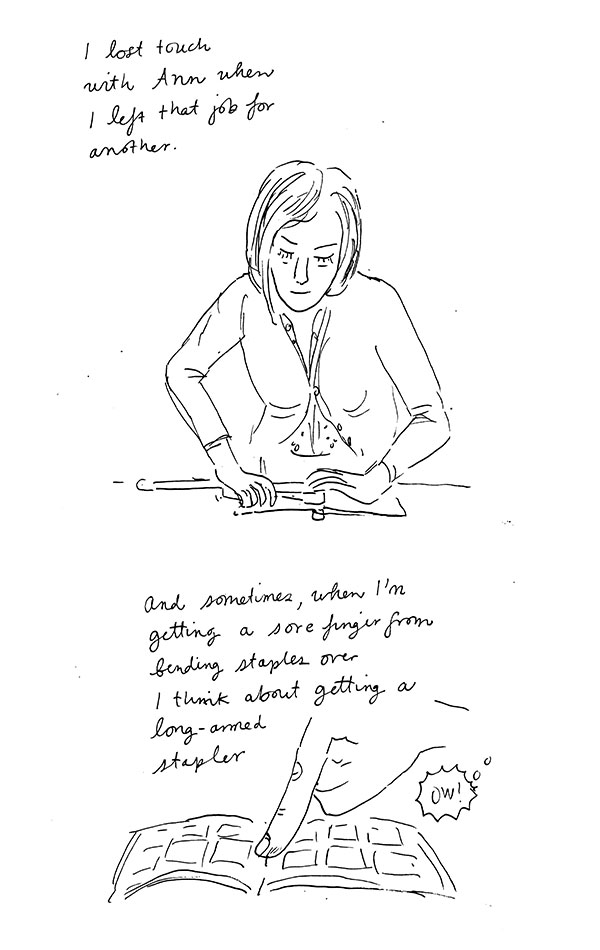 I lost touch
with Ann when
I left that job for
another.
And sometimes, when I'm
getting a sore finger from
bending staples over
I think about getting a
long-armed
stapler
OW!